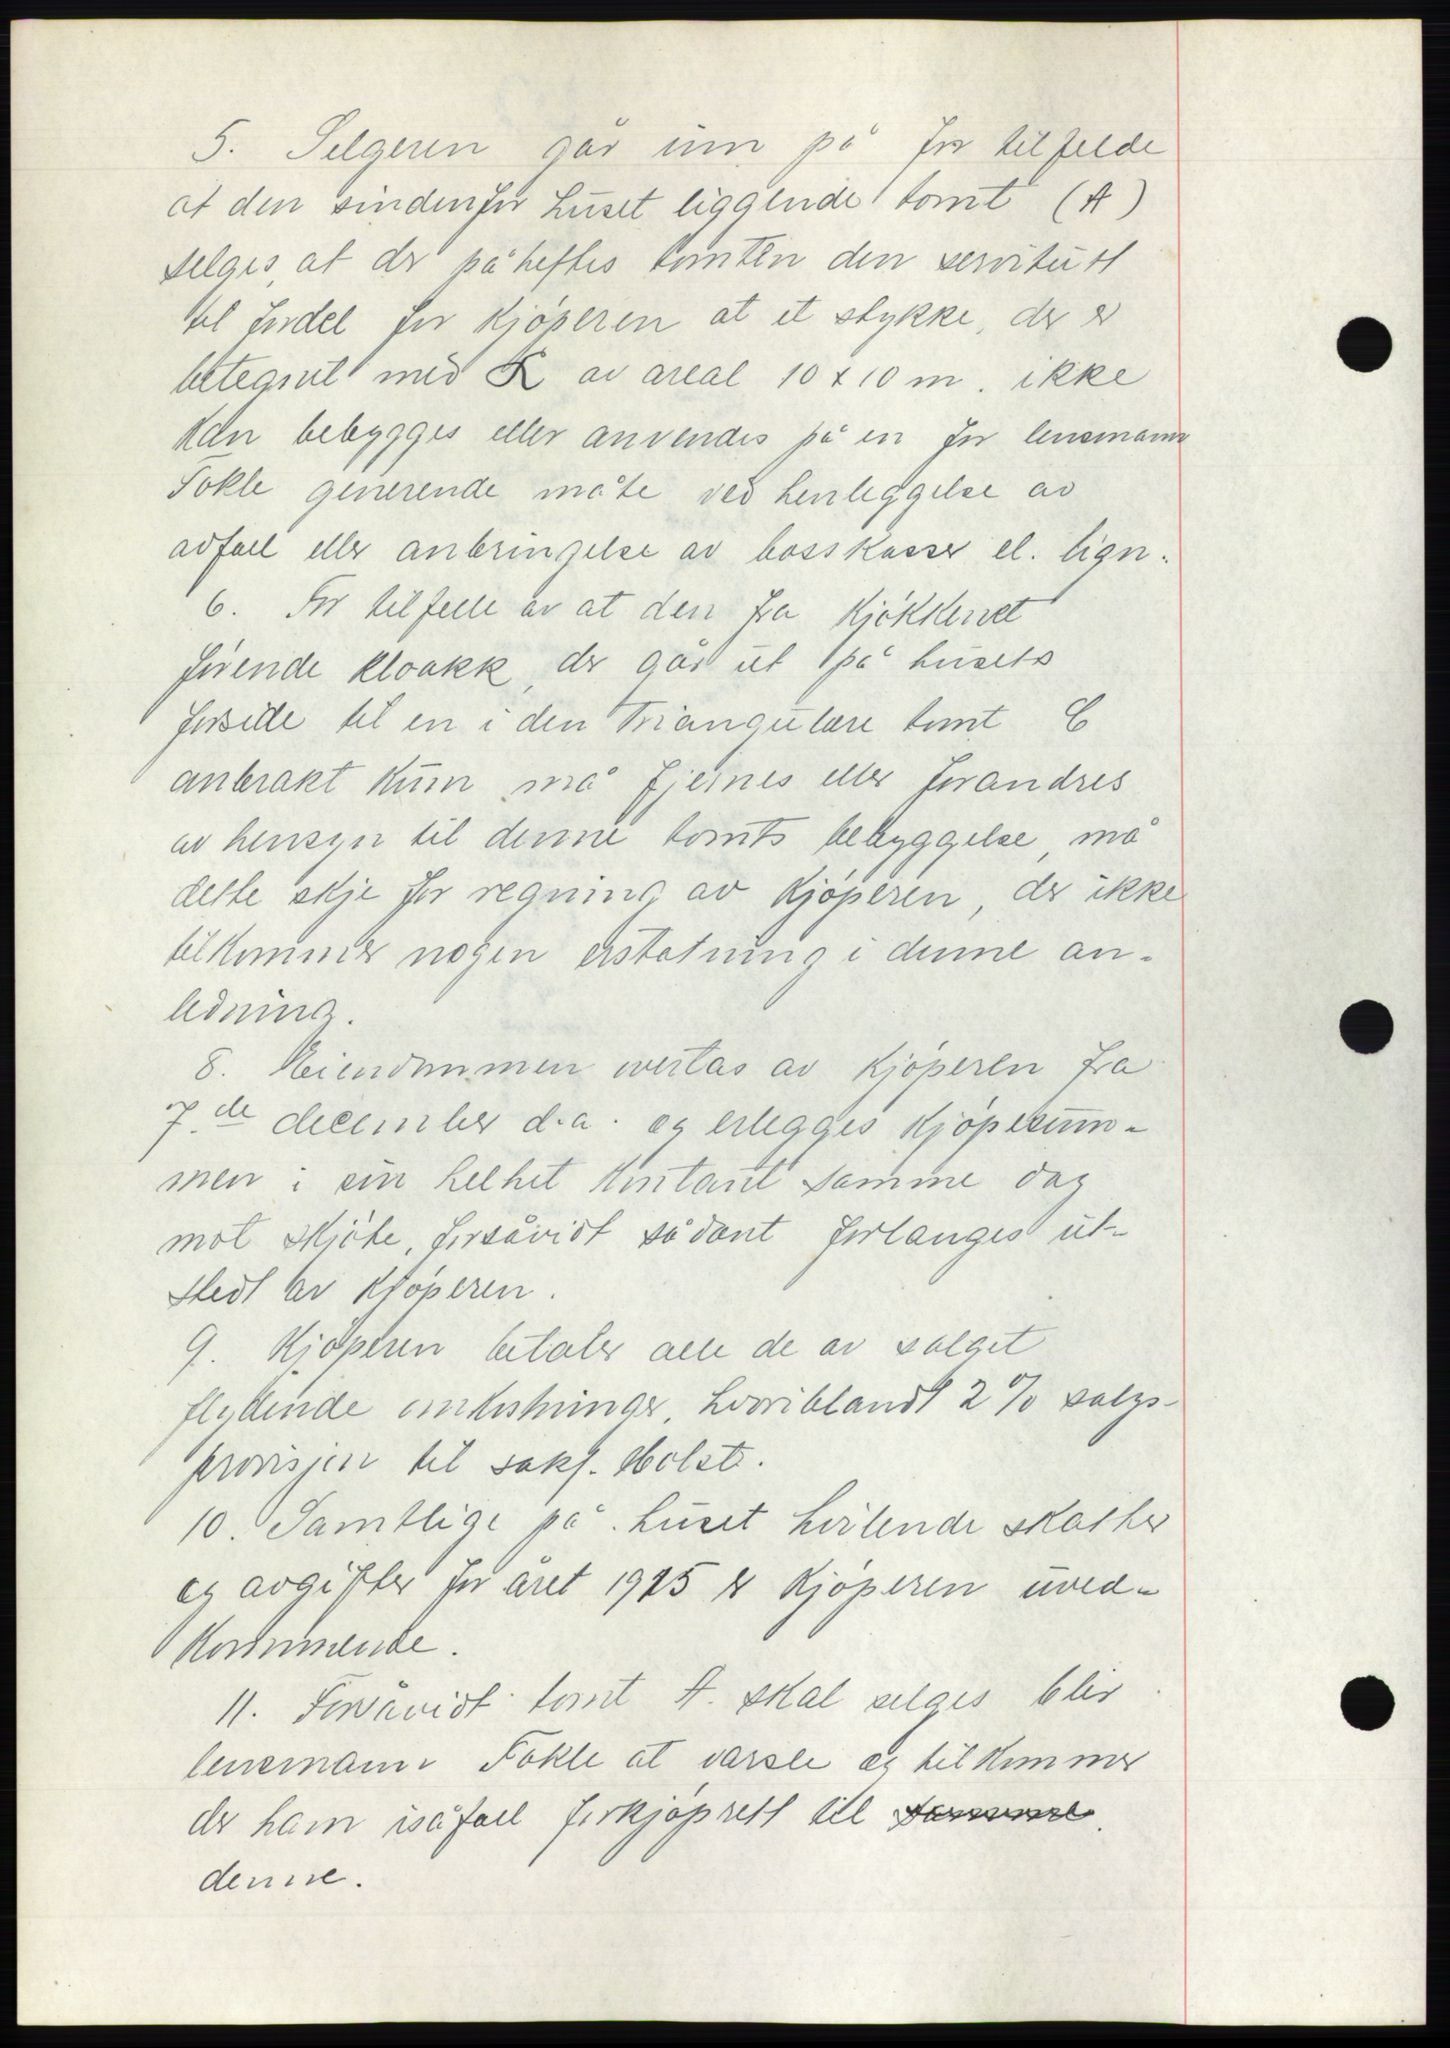 5. Selgeren går inn på for tilfelde
at den sindenfor huset liggende tomt (A)
selges, at der påheftes tomten den servitutt
til fordel for kjøperen at et stykke, der er
betegnet med K av areal 10 x 10 m. ikke
kan bebygges eller anvendes på en for lensmann
Tokle generende måte ved henleggelse av
avfall eller anbringelse av bosskasser el. lign.
6. For tilfelle av at den fra kjøkkenet
førende kloakk, der går ut på husets
forside til en i den triangulære tomt C
anbrakt kum må fjernes eller forandres
av hensyn til denne tomts bebyggelse, må
dette skje for regning av kjøperen, der ikke
tilkommer nogen erstatning i denne an-
ledning.
8. Eiendommen overtas av kjøperen fra
7.de december d.a. og erlegges kjøpesum-
men i sin helhet kontant samme dag
mot skjøte, forsåvidt sådant forlanges ut-
stedt av kjøperen.
9. Kjøperen betaler alle de av salget
flydende omkostninger, hvoriblandt 2 % salgs-
provisjon til sakf. Holst.
10. Samtlige på huset hvilende skatter
og avgifter for året 1925 er kjøperen uved-
kommende.
11. Forsåvidt tomt A. skal selges blir
lensmann Tokle at varsle og tilkommer
der ham isåfall forkjøpsrett til samme.
denne.